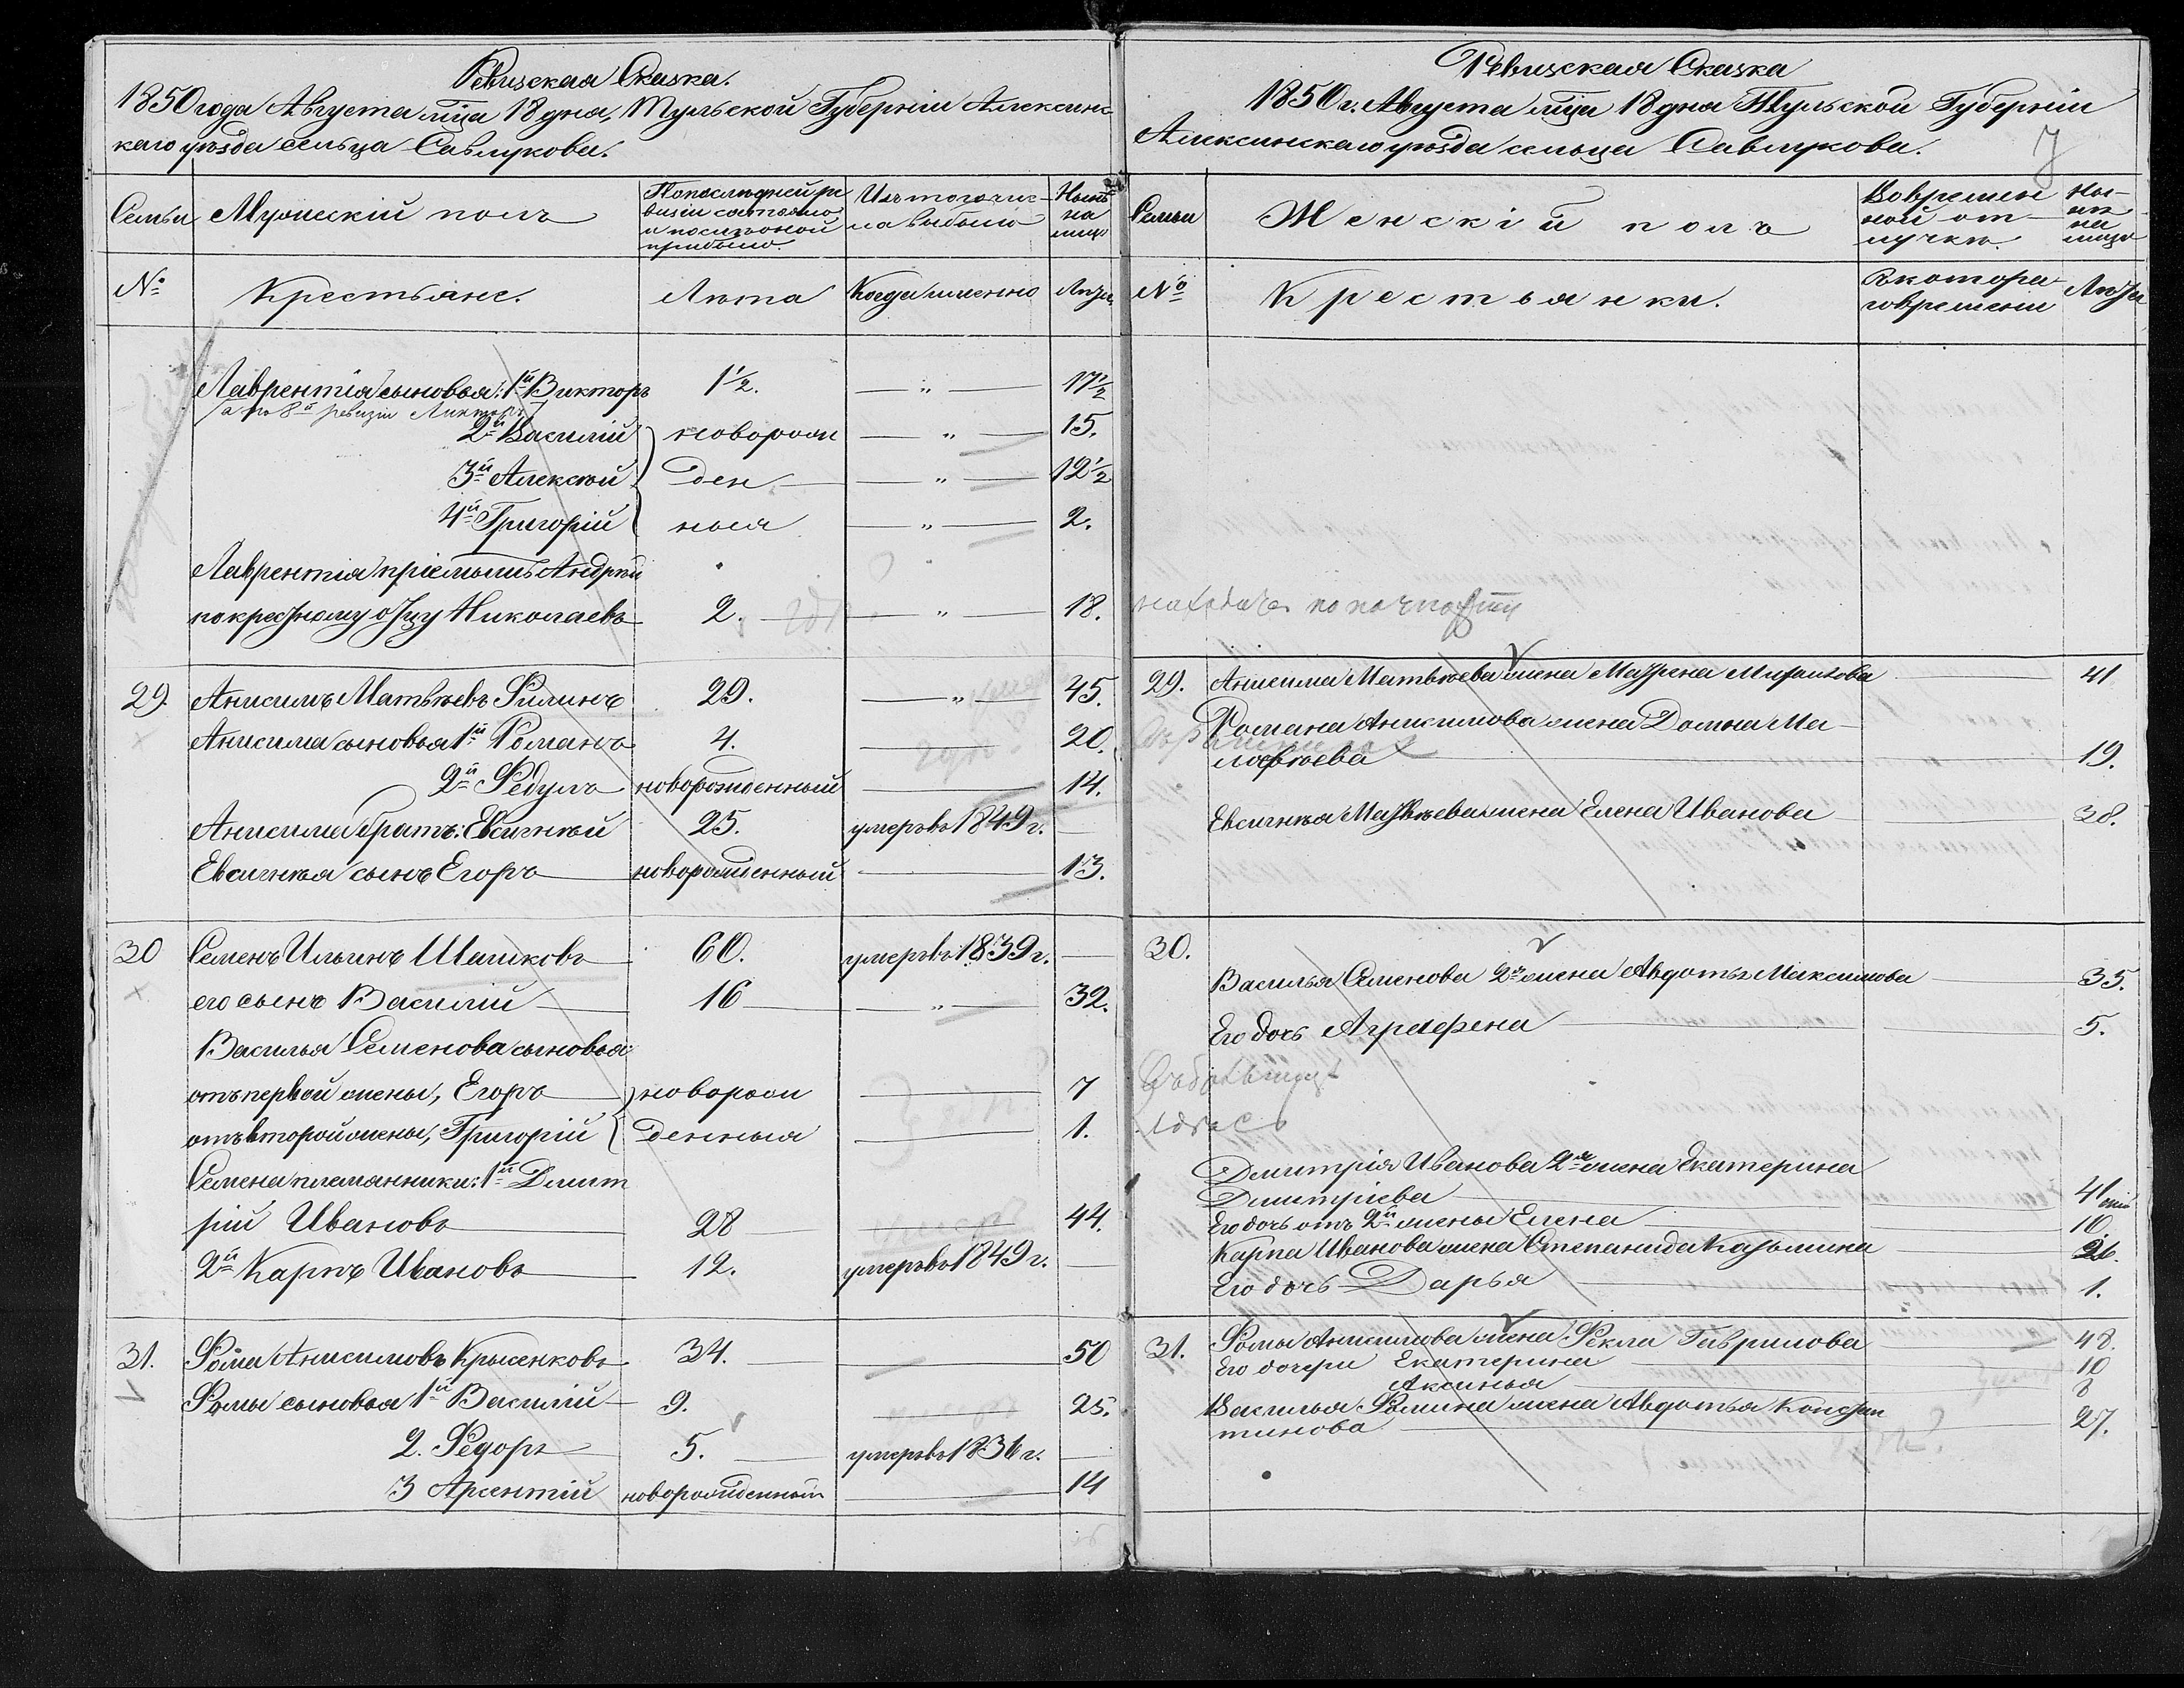 Ревизская Сказка.
1850 года Августа мца 18 дня, Тульской Губерніи Алексинс
каго уѣзда сельца Савлукова.
Семьи Мужескій полъ По послѣдней ре Изъ того чис- Нынѣ
визіи состояло ла выбыло на
и послѣ оной лицо
прибыло.
№ Крестьяне. Лѣта Когда именно Лѣта
Лаврентія сыновья: 1й Викторъ 1½. — „ — 17½
а по 8й ревизіи
2й Василій новорож — „ — 15.
3й Алексѣй ден — „ — 12½
4й Григорій ныя — „ — 2.
Лаврентія пріемышъ Андрей
по крестному отцу Николаевъ 2. — „ — 18.
29. Анисимъ Матвѣевъ Филинъ 29. — „ — 45.
Анисима сыновья 1й Романъ 4. — 20.
2й Федулъ новорожденный — 14.
Анисима братъ: Евсигнѣй 25. умеръ въ 1849 г. —
Евсигнѣя сынъ Егоръ новорожденный — 13.
30 Семенъ Ильинъ Шашковъ 60. умеръ въ 1839 г. —
его сынъ Василій 16 — „ — 32.
Василья Семенова сыновья:
отъ первой жены, Егоръ новорож — 7
отъ второй жены, Григорій денныя — 1.
Семена племянники: 1й Дмит
рій Ивановъ 28 — 44.
2й Карпъ Ивановъ 12. умеръ въ 1849 г. —
31. Фома Анисимовъ Крысенковъ 34. — 50
Фомы сыновья 1й Василій 9. — 25.
2. Федоръ 5. умеръ въ 1836 г. —
3 Арсентій новорожденный — 14
Ревизская Сказка
1850 г. Августа мца 18 дня Тульской Губерніи
Алексинскаго уѣзда сельца Савлукова.
7
Семьи Женскій полъ Во времен Ны-
ной от нѣ
лучкѣ. на
лицо
№ Крестьянки. Въ котора Лѣта
го времени
находится по
29. Анисима Матвѣева жена Матрена 41
Романа Анисимова жена Домна Ма-
19.
Евсигнѣя Матвѣева жена Елена Иванова 38.
30.
Василья Семенова 2я жена Авдотья Максимова 35.
Его дочь Аграфена 5.
Дмитрія Иванова 2я жена Екатерина
Дмитріева 41
Его дочь отъ 2й жены Елена 10.
Карпа Иванова жена Степанида Казьмина 26.
Его дочь Дарья 1.
31. Фомы Анисимова жена Фекла Гаврилова 48.
Его дочери Екатерина 10
Аксинья 8
Василья Фомина жена Авдотья Констан
тинова 27.